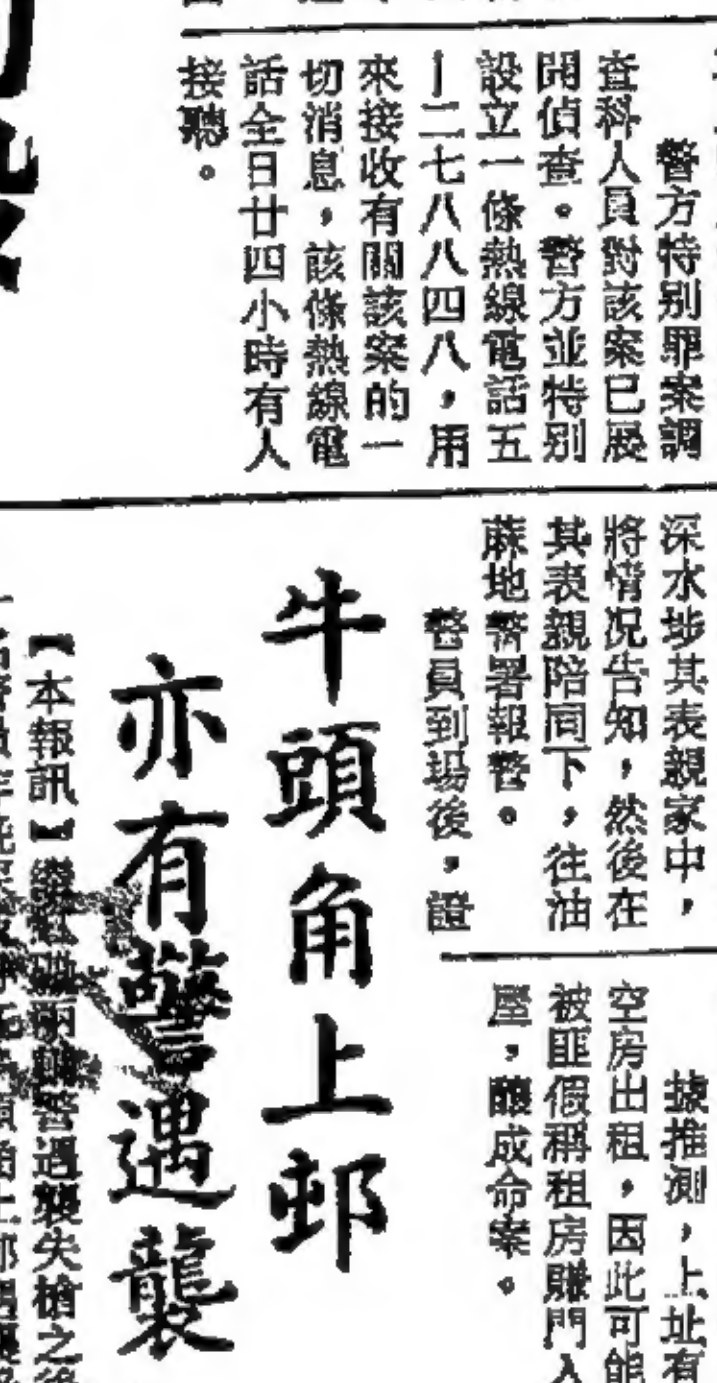 警方特別罪案調
查科人員對該案已展
開偵查。警方並特別
設立一條熱線電話五
－二七八八四八，用
來接收有關該案的一
切消息，該條熱線電
話全日廿四小時有人
接聽。
深水埗其表親家中，
將情况告知，然後在
其表親陪同下，往油
蔴地警署報警。
警員到場後，證
據推測，上址有
空房出租，因此可能
被匪假稱租房賺門入
屋，釀成命案。
牛頭角上邨
亦有警遇襲
【本報訊】繼紅磡兩輔警遇襲失槍之後